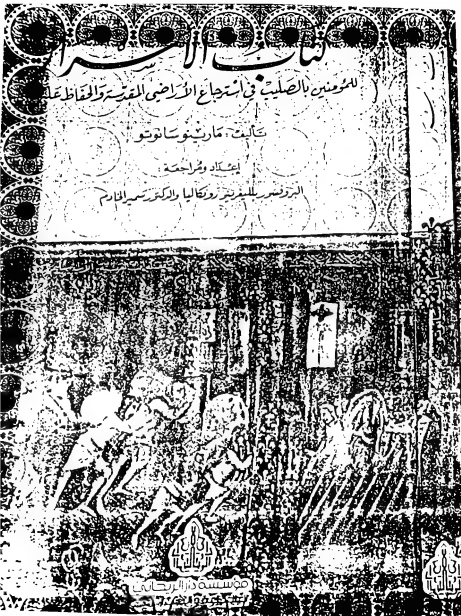 كتاب الأسرار
للمؤمنين بالصليب في استرجاع الأراضي المقدسة والحفاظ عليها
تأليف: مارينو سانوتو
إعداد ومراجعة
البروفسور سليفريو رونكاليا والدكتور سمير الخادم
مؤسسة دار الريحاني